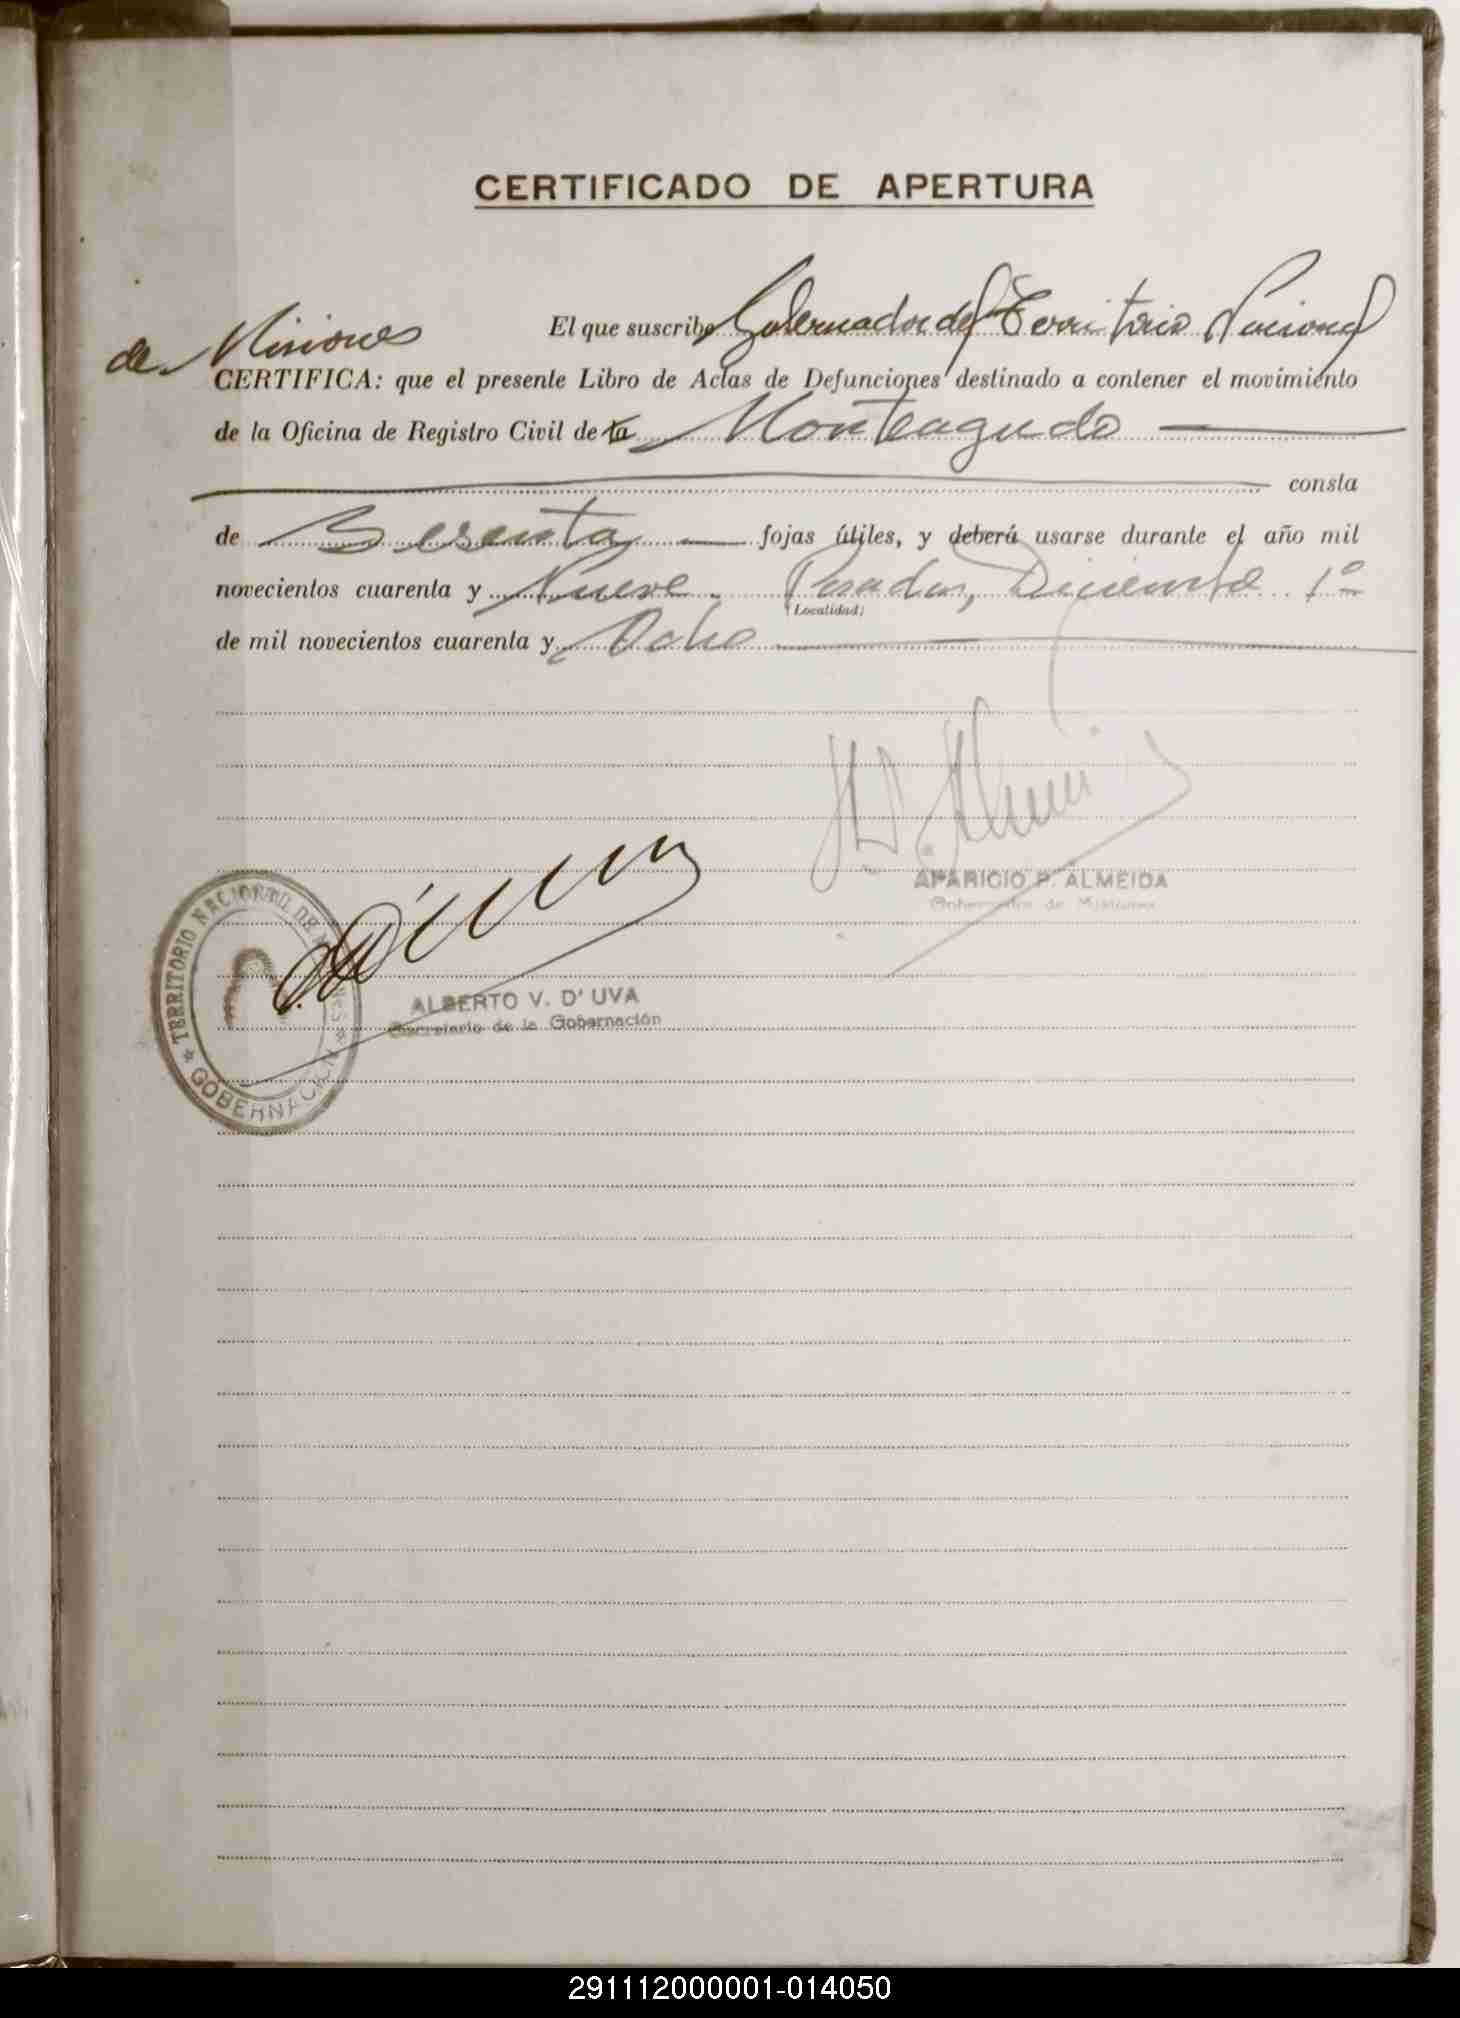 CERTIFICADO DE APERTURA
El que suscribe Gobernador del Territorio Nacional
de Misiones
CERTIFICA: que el presente Libro de Actas de Defunciones destinado a contener el movimiento
de la Oficina de Registro Civil de la Monteagudo
consta
de Sesenta fojas útiles, y deberá usarse durante el año mil
novecientos cuarenta y Nueve. Posadas, Diciembre 1º
(Localidad)
de mil novecientos cuarenta y Ocho
APARICIO P. ALMEIDA
Gobernador de Misiones
ALBERTO V. D' UVA
Secretario de la Gobernación
TERRITORIO NACIONAL DE MISIONES
GOBERNACION
291112000001-014050